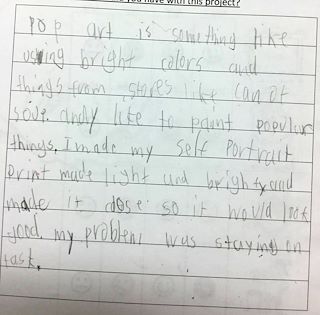 you have with this project?
pop art is something like
using bright colors and
things from stores like can of
soup. andy like to paint popular
things. I made my self portrait
print made light and brighty and
made it dose so it would look
good. my problem was staying on
task.